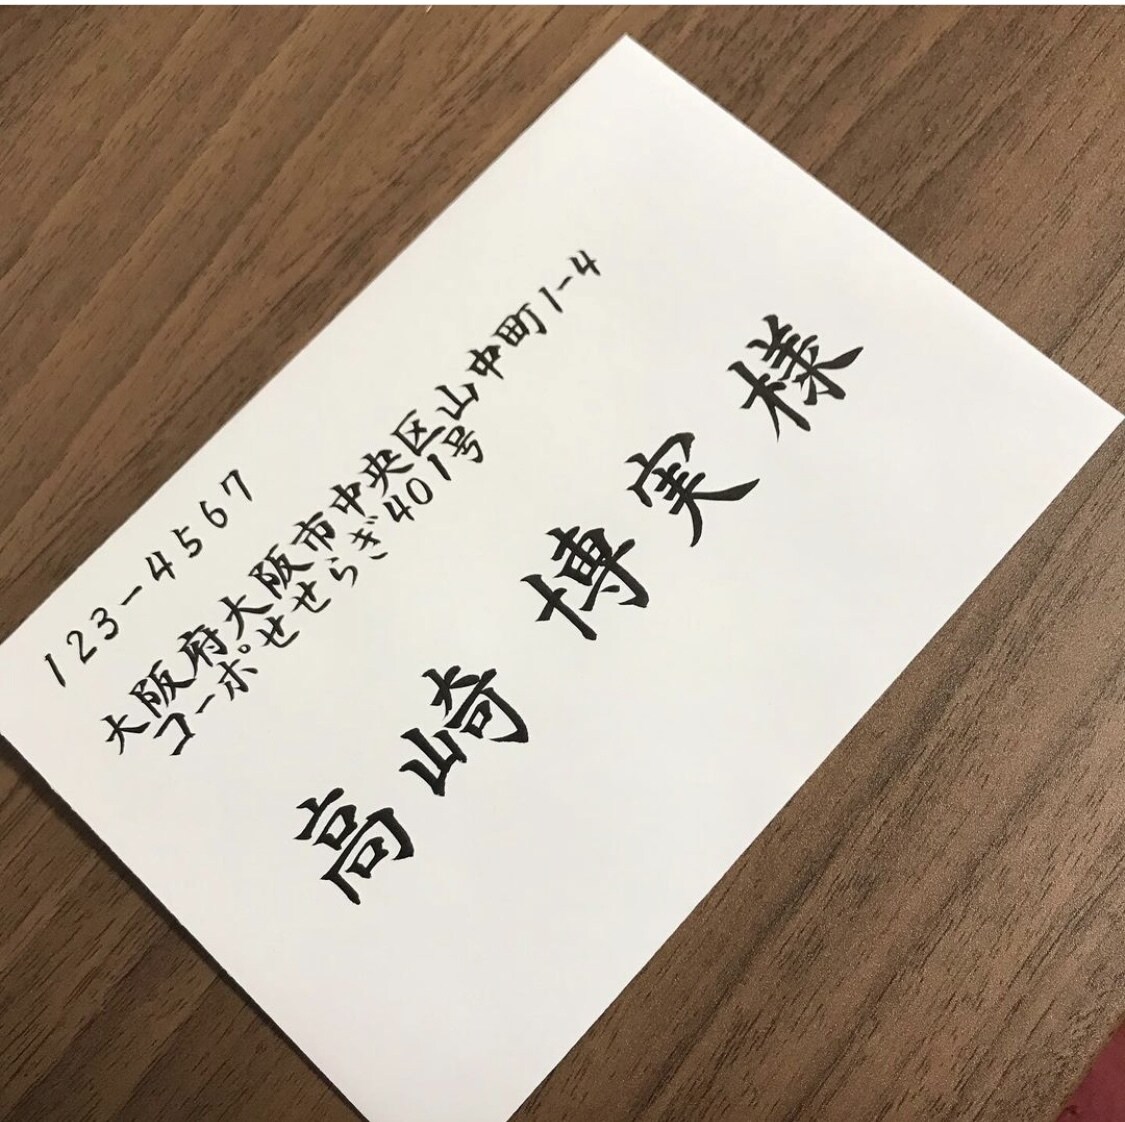 123-4567
大阪府大阪市中央区山中町1-4
コーポせせらぎ401号
高崎 博実 様